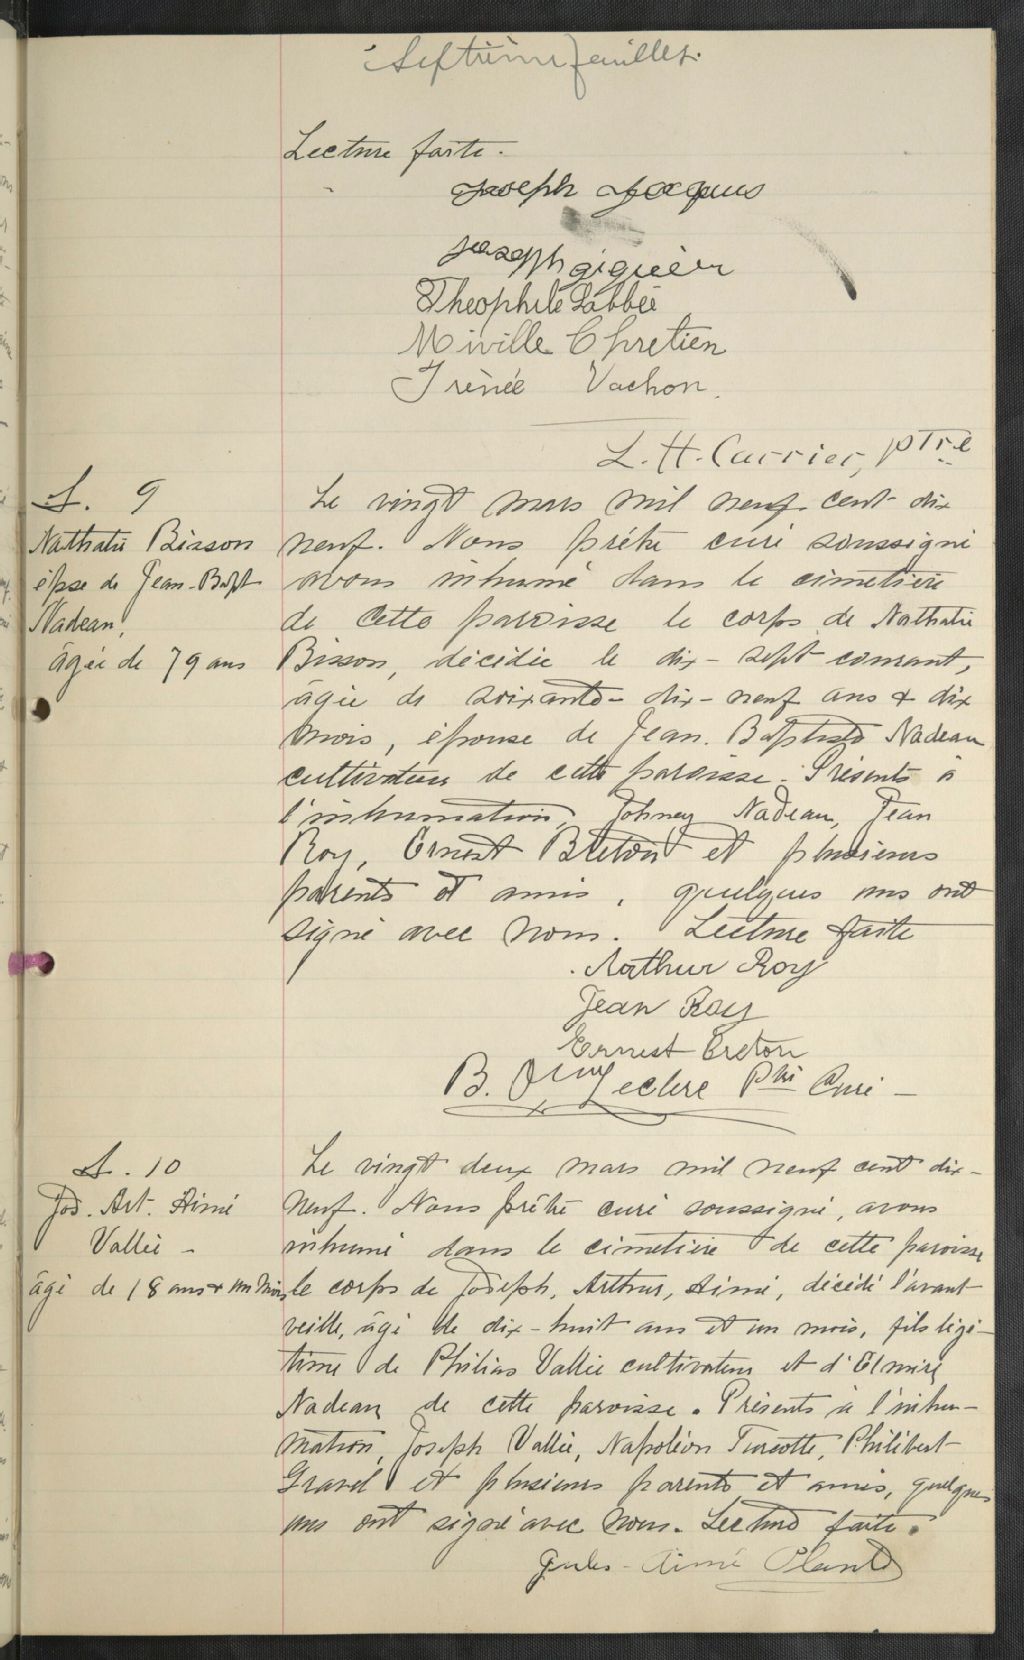 Septième feuillet.
Lecture faite.
Joseph Jacques
Joseph giguère
Theophile Labbée
Miville Chretien
Irenée Vachon.
L. H. Carrier, ptre
S. 9
Nathalie Bisson
épse de Jean-Bapt
Nadeau,
âgée de 79 ans
Le vingt mars mil neuf cent dix
neuf. Nous prêtre curé soussigné
avons inhumé dans le cimetière
de cette paroisse le corps de Nathalie
Bisson, décédée le dix-sept courant,
âgée de soixante-dix-neuf ans & dix
mois, épouse de Jean. Baptiste Nadeau
cultivateur de cette paroisse. Présents à
l'inhumation, Johney Nadeau, Jean
Roy, Ernest Breton et plusieurs
parents et amis, quelques uns ont
signé avec nous. Lecture faite
Arthur Roy
Jean Roy
Ernest Breton
B. Leclerc Ptre Curé -
S. 10
Jos. Art. Aimé
Vallée -
âgé de 18 ans & un mois
Le vingt deux mars mil neuf cent dix-
neuf. Nous prêtre curé soussigné, avons
inhumé dans le cimetière de cette paroisse
le corps de Joseph, Arthur, Aimé, décédé l'avant
veille, âgé de dix-huit ans et un mois, fils légi-
time de Philias Vallée cultivateur et d'Elmire
Nadeau de cette paroisse. Présents à l'inhu-
mation, Joseph Vallée, Napoléon Turcotte, Philibert
Gravel et plusieurs parents et amis, quelques
uns ont signé avec nous. Lecture faite.
Jules-Aimé Plante